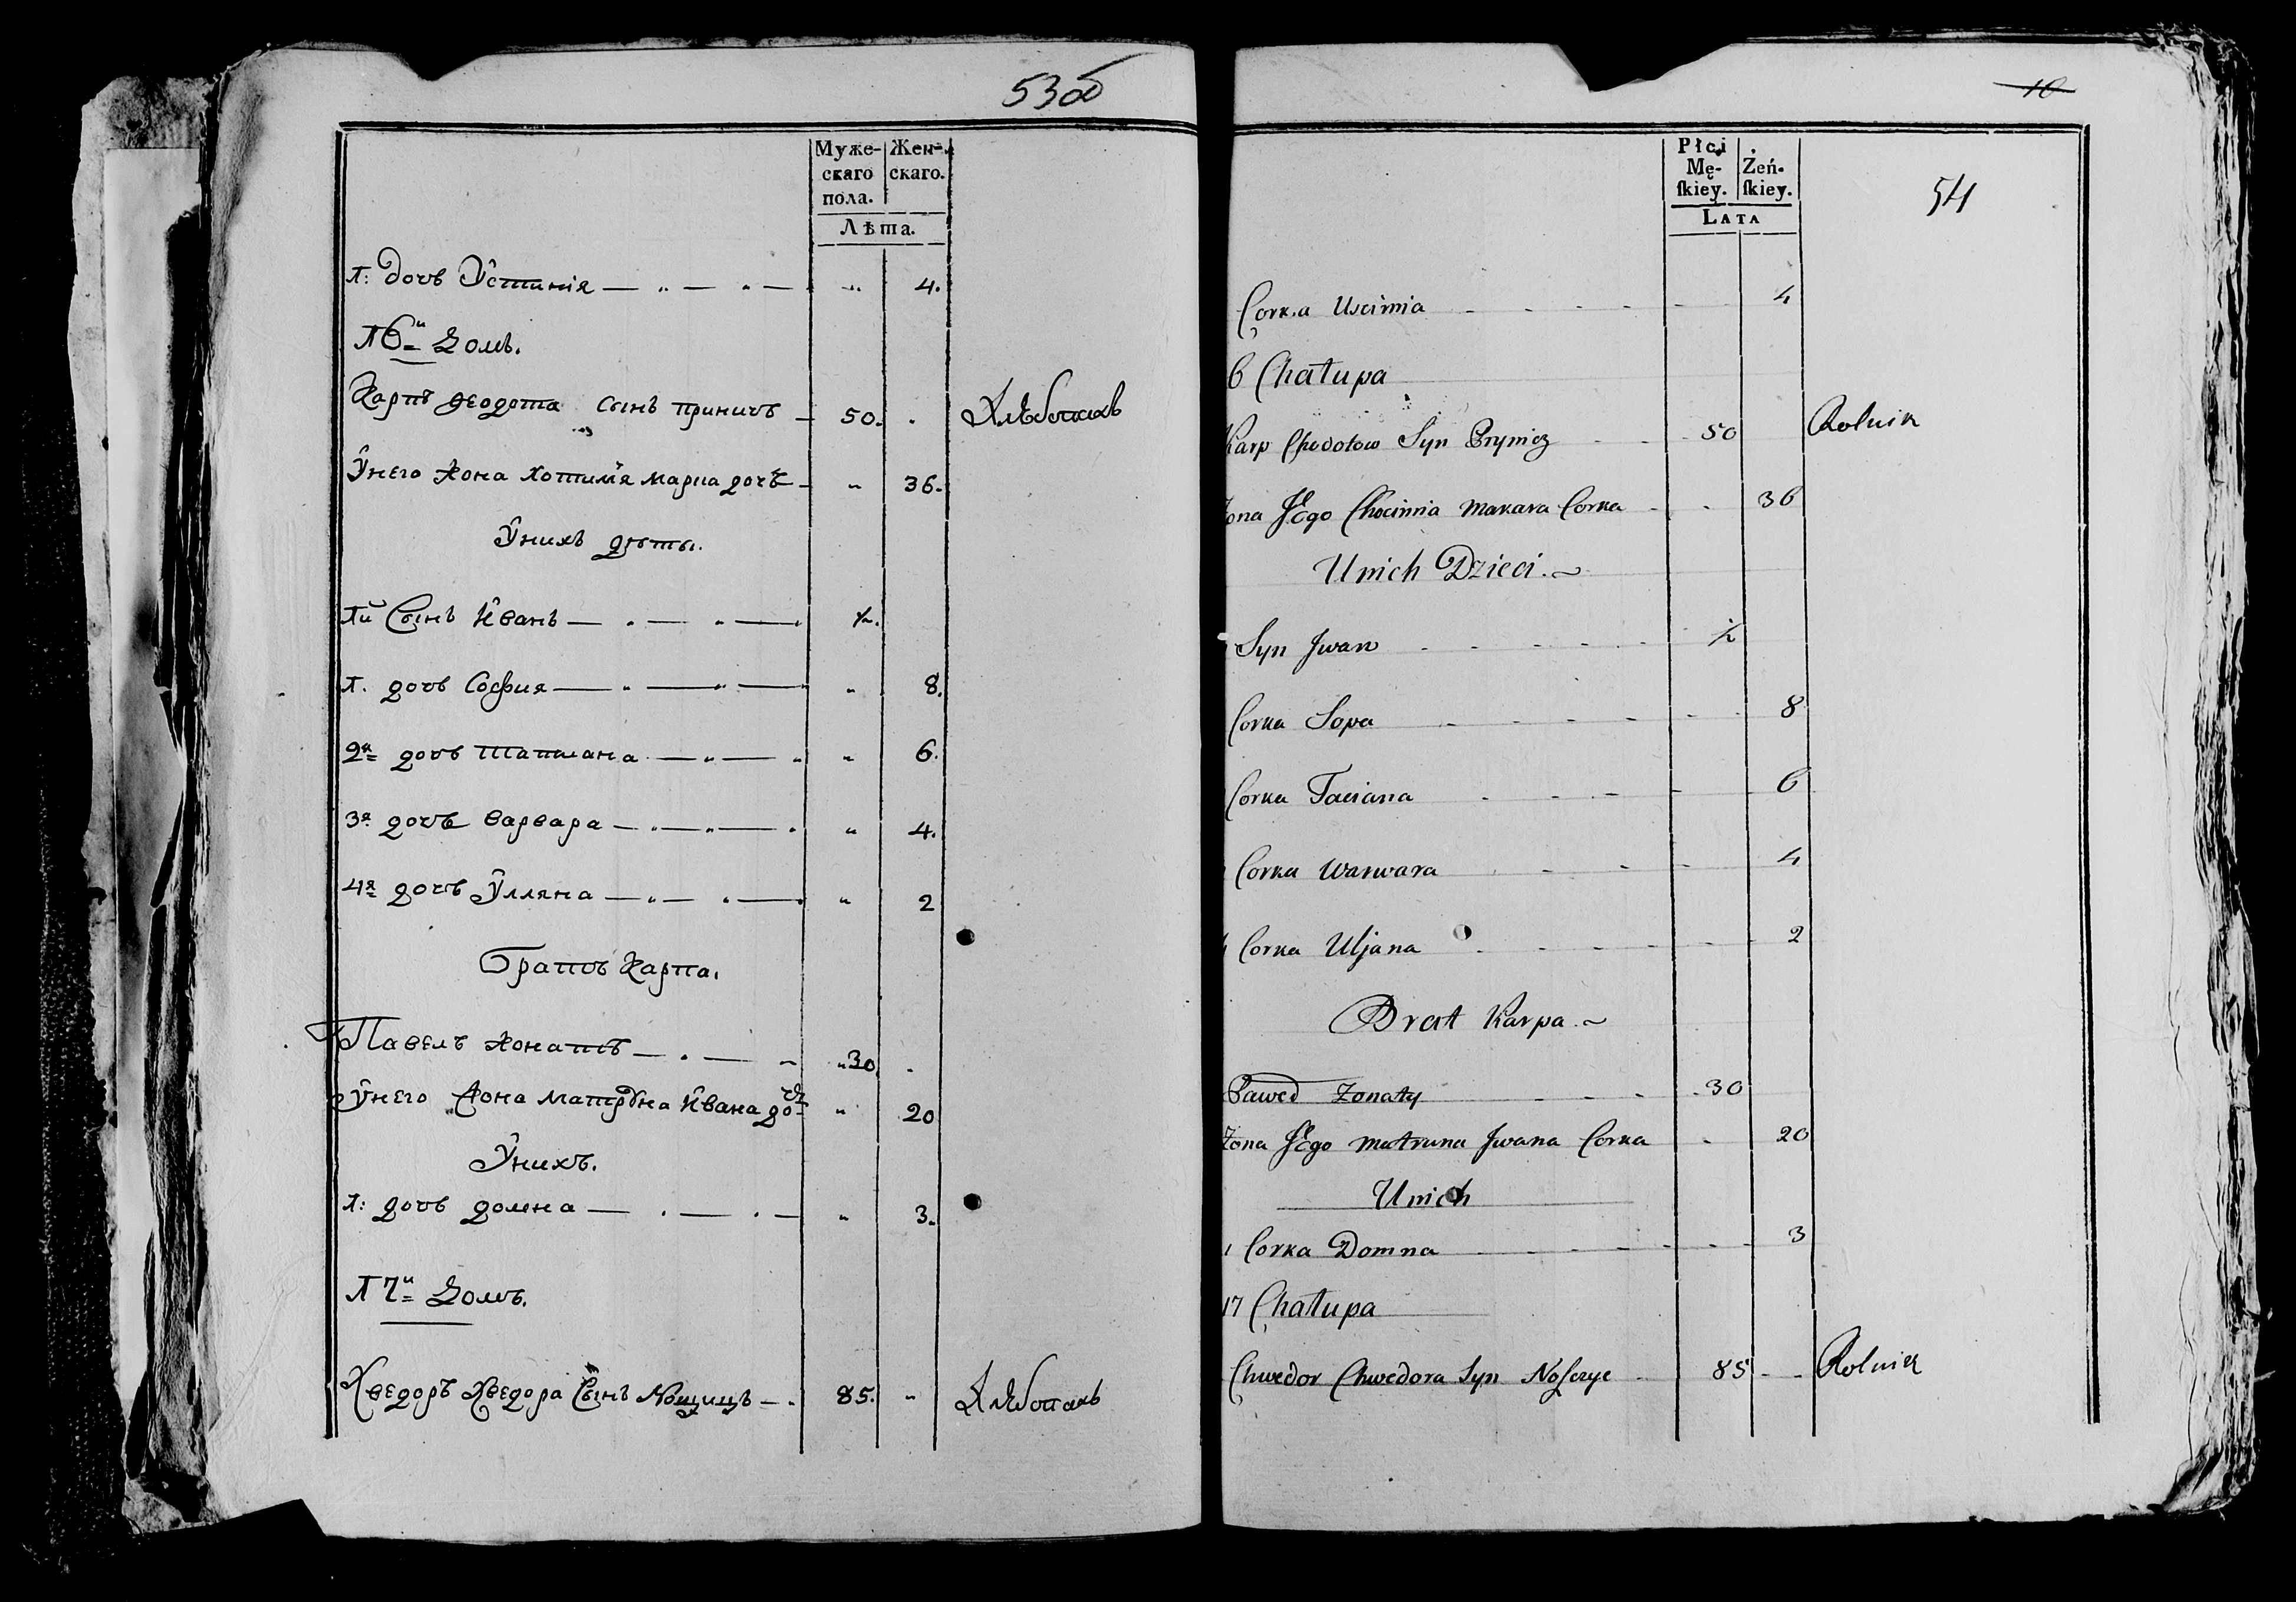 53об
Муже-
скаго
пола.
Жен-
скаго.
Лѣта.
1: дочь Устинія — „ — „ — „ 4.
16й Домъ.
Карпъ Федота сынъ приничъ — 50. „ Хлѣбопашъ
Унего жона хотимія марка дочь — „ 36.
Унихъ дѣти.
1й Сынъ Иванъ — „ — „ — ½.
1. дочь София — „ — „ — „ 8.
2я дочь татиана — „ — „ „ 6.
3я дочь варвара — „ — „ — „ 4.
4я дочь Улляна — „ — „ — „ 2
Братъ Карпа.
Павелъ жонатъ — „ — „ 30. „
Унего жона матруна Ивана дочь „ 20
Унихъ.
1: дочь домна — „ — „ — „ 3.
17й Домъ.
Хведоръ Хведора Сынъ Нощицъ — „ 85. „ Хлѣбопашъ
10
Płci
Mę-
ſkiey.
Żeń-
ſkiey.
Lata
54
Corka Uscinia 4
6 Chałupa
Karp Chodotow Syn Prynicz 50 Rolnik
Zona Jego Chocimia Makara Corka 36
Unich Dzieci
Syn Jwan ½
Corka Sopa 8
Corka Taciana 6
Corka Warwara 4
4 Corka Uljana 2
Brat Karpa
Paweł Zonaty 30
Zona Jego Matruna Jwana Corka 20
Unich
1 Corka Domna 3
17 Chałupa
Chwedor Chwedora Syn Noſczyc 85 Rolnik